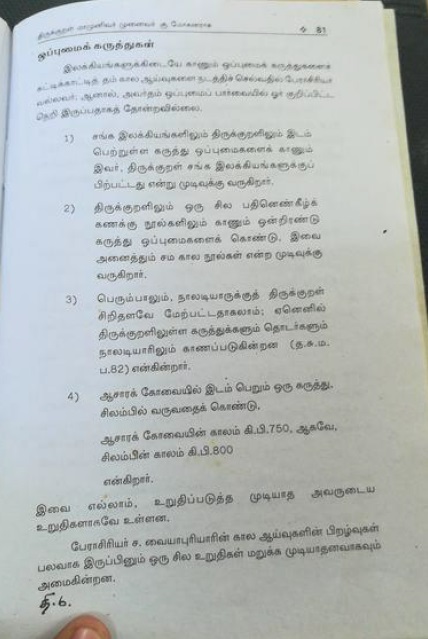 திருக்குறள் மாமுனிவர் முனைவர் கு. மோகனராசு 81
ஒப்புமைக் கருத்துகள்
இலக்கியங்களுக்கிடையே காணும் ஒப்புமைக் கருத்துகளைச்
சுட்டிக்காட்டித் தம் கால ஆய்வுகளை நடத்திச் செல்வதில் பேராசிரியர்
வல்லவர்; ஆனால், அவர்தம் ஒப்புமைப் பார்வையில் ஓர் குறிப்பிட்ட
நெறி இருப்பதாகத் தோன்றவில்லை.
1) சங்க இலக்கியங்களிலும் திருக்குறளிலும் இடம்
பெற்றுள்ள கருத்து ஒப்புமைகளைக் காணும்
இவர், திருக்குறள் சங்க இலக்கியங்களுக்குப்
பிற்பட்டது என்று முடிவுக்கு வருகிறார்.
2) திருக்குறளிலும் ஒரு சில பதினெண்கீழ்க்
கணக்கு நூல்களிலும் காணும் ஒன்றிரண்டு
கருத்து ஒப்புமைகளைக் கொண்டு, இவை
அனைத்தும் சம கால நூல்கள் என்ற முடிவுக்கு
வருகிறார்.
3) பெரும்பாலும், நாலடியாருக்குத் திருக்குறள்
சிறிதளவே மேற்பட்டதாகலாம்; ஏனெனில்
திருக்குறளிலுள்ள கருத்துக்களும் தொடர்களும்
நாலடியாரிலும் காணப்படுகின்றன (த.சு.ம.
ப.82) என்கின்றார்.
4) ஆசாரக் கோவையில் இடம் பெறும் ஒரு கருத்து,
சிலம்பில் வருவதைக் கொண்டு,
ஆசாரக் கோவையின் காலம் கி.பி.750, ஆகவே,
சிலம்பின் காலம் கி.பி.800
என்கிறார்.
இவை எல்லாம், உறுதிப்படுத்த முடியாத அவருடைய
உறுதிகளாகவே உள்ளன.
பேராசிரியர் ச. வையாபுரியாரின் கால ஆய்வுகளின் பிறழ்வுகள்
பலவாக இருப்பினும் ஒரு சில உறுதிகள் மறுக்க முடியாதனவாகவும்
அமைகின்றன.
தி.6.